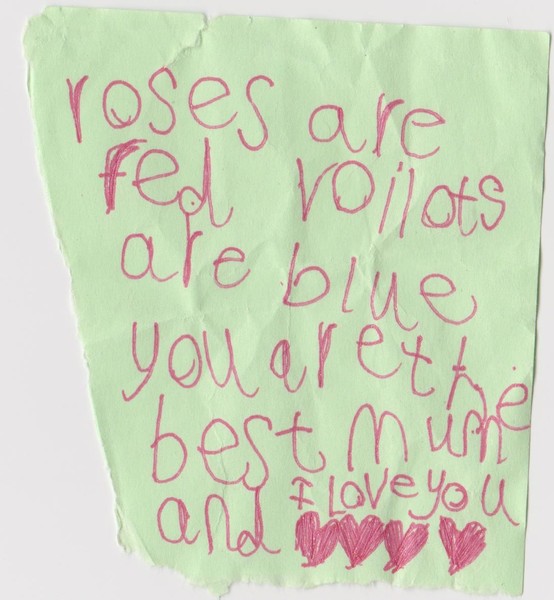 roses are
red voilats
are blue
you are the
best mum
and I Love you